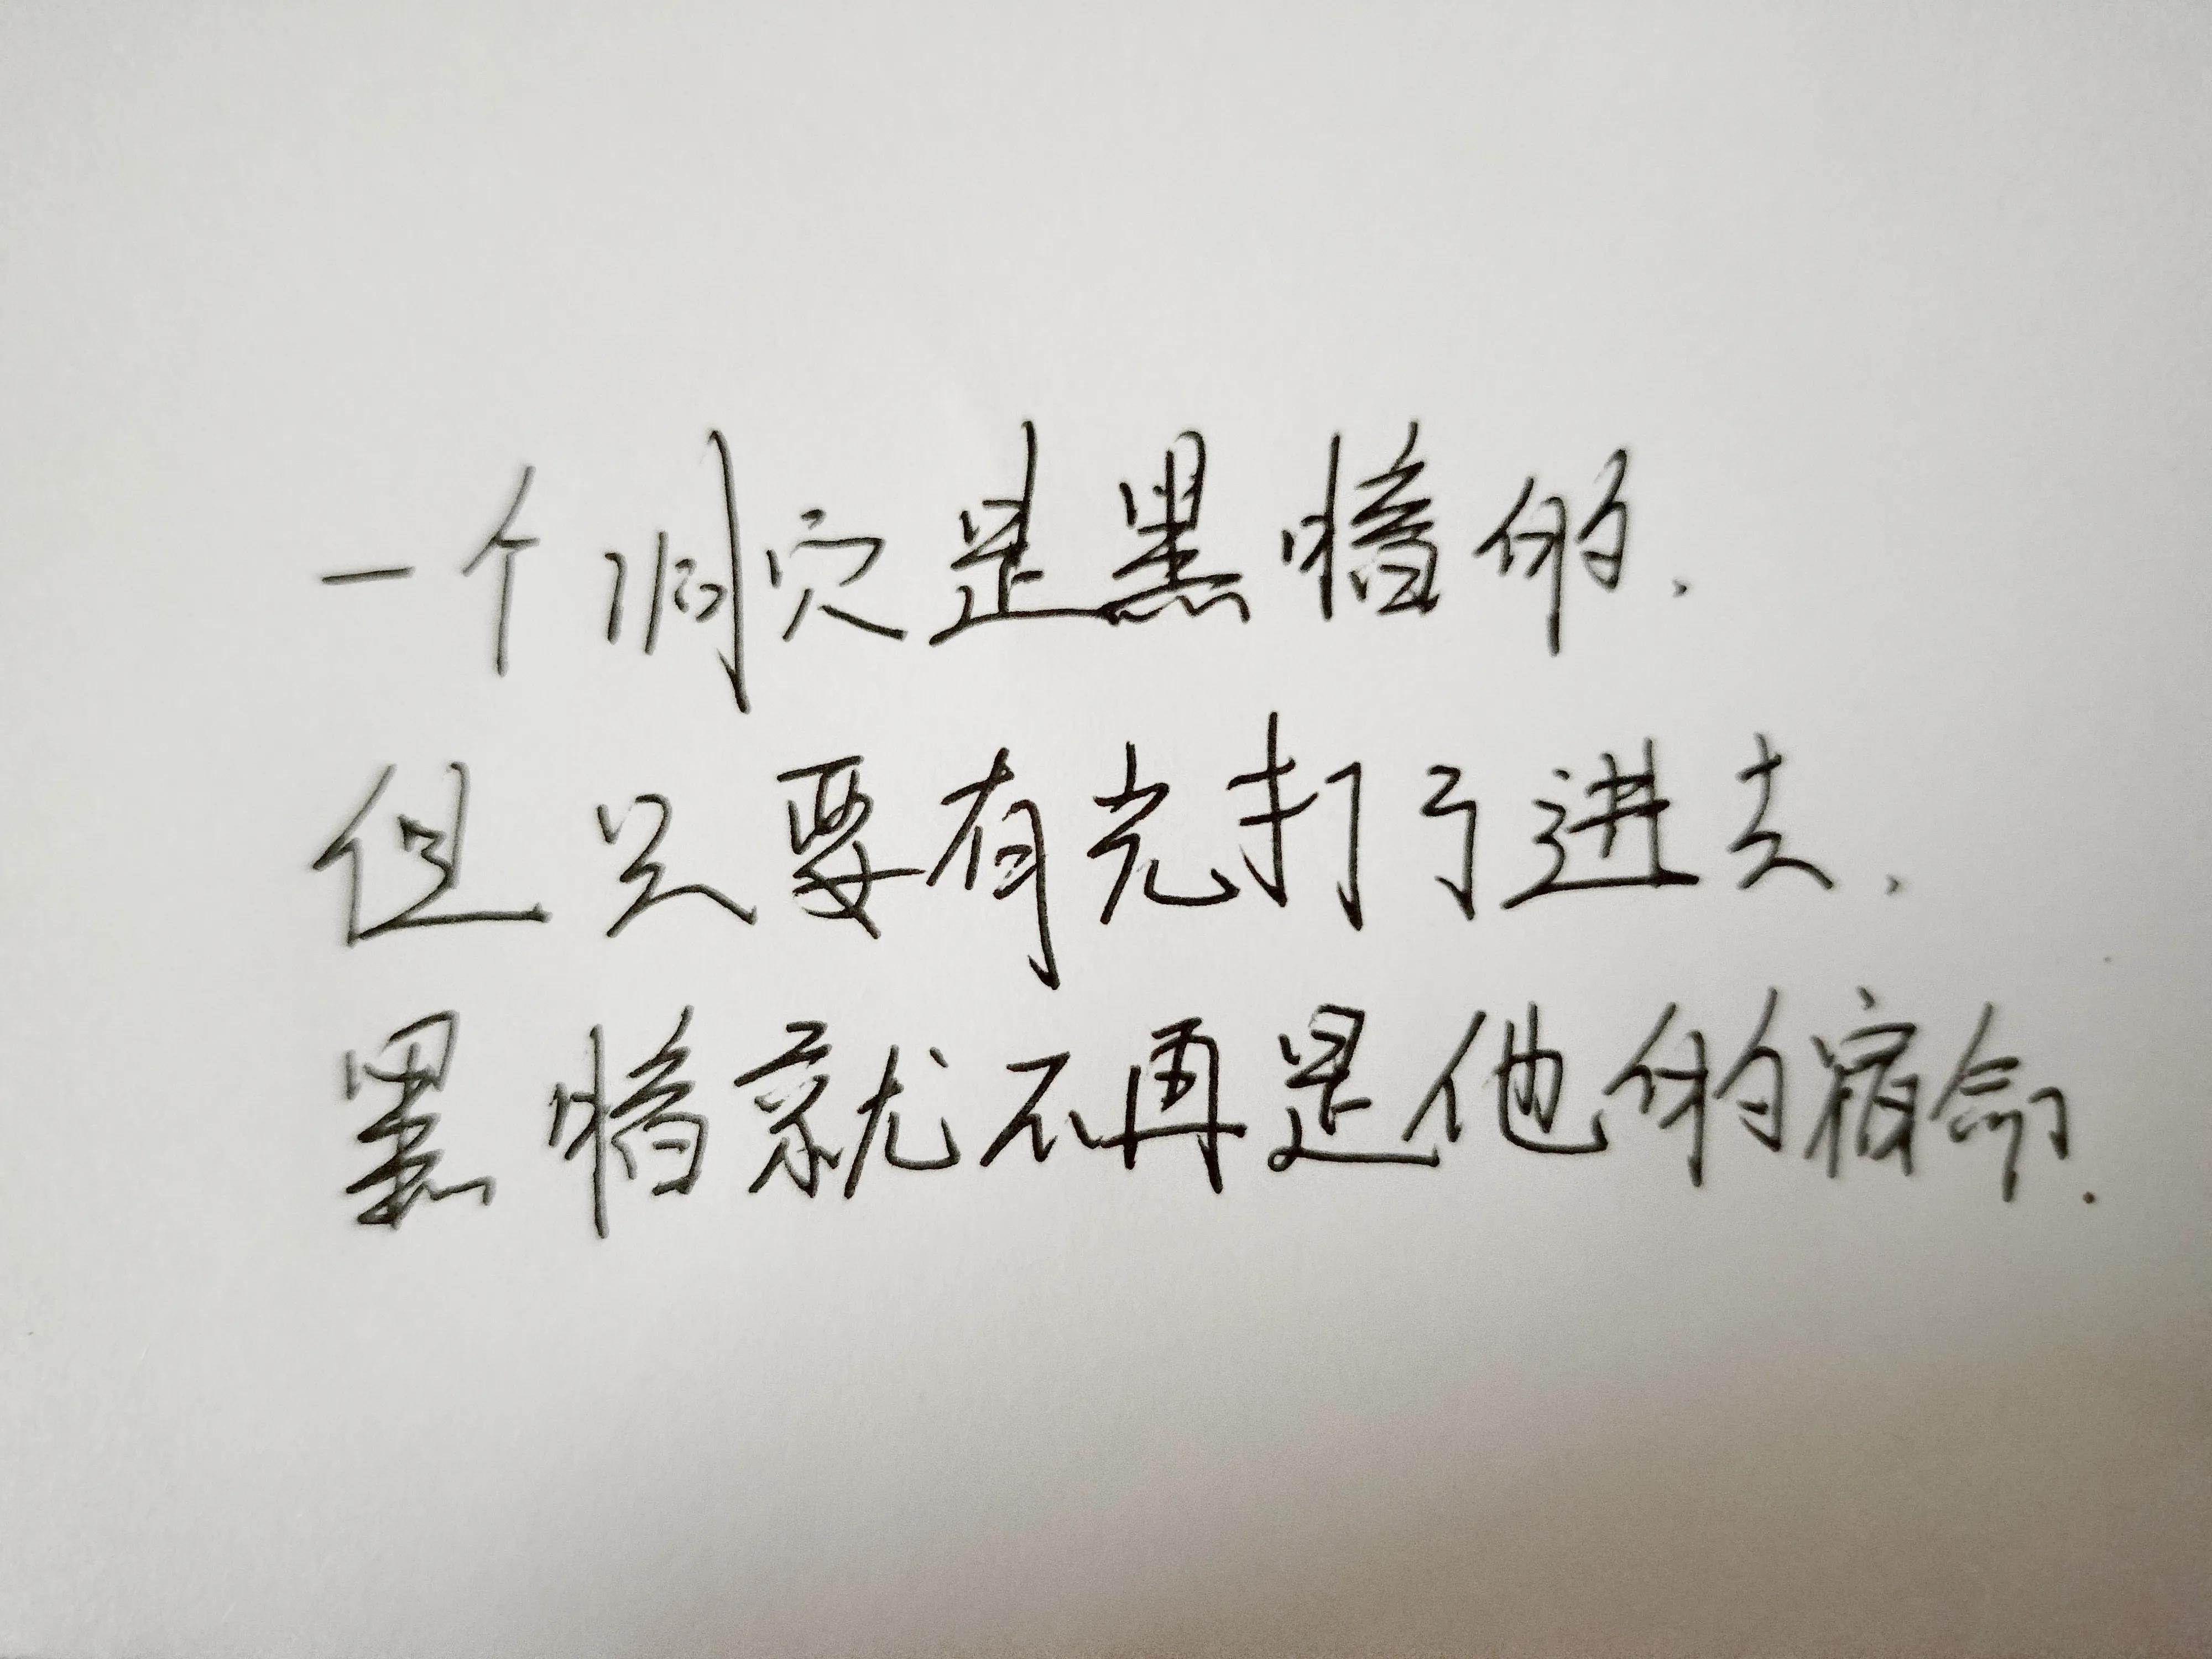 一个洞穴是黑暗的.
但只要有光打了进去.
黑暗就不再是他的宿命.